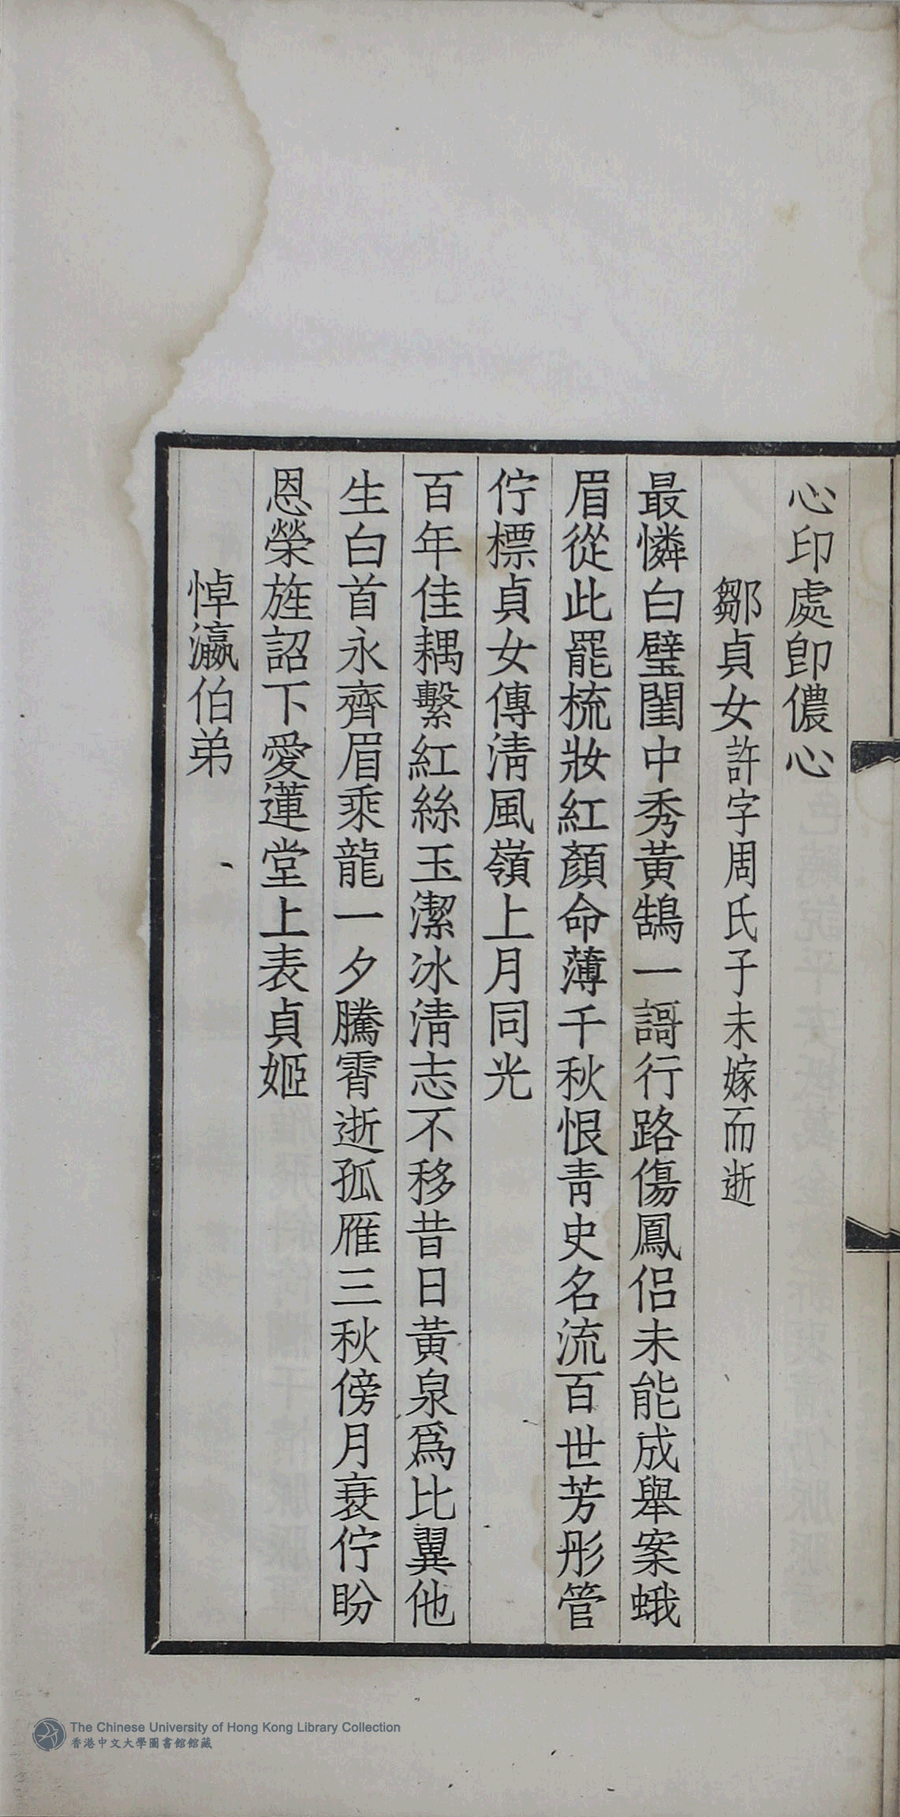 心印處卽儂心
鄒貞女許字周氏子未嫁而逝
最憐白璧閨中秀黃鵠一謌行路傷鳳侶未能成舉案蛾
眉從此罷梳妝紅顏命薄千秋恨靑史名流百世芳彤管
佇標貞女傳淸風嶺上月同光
百年佳耦繫紅絲玉潔冰淸志不移昔日黃泉爲比翼他
生白首永齊眉乘龍一夕騰霄逝孤雁三秋傍月衰佇盼
恩榮旌詔下愛蓮堂上表貞姬
悼瀛伯弟
The Chinese University of Hong Kong Library Collection
香港中文大學圖書館館藏